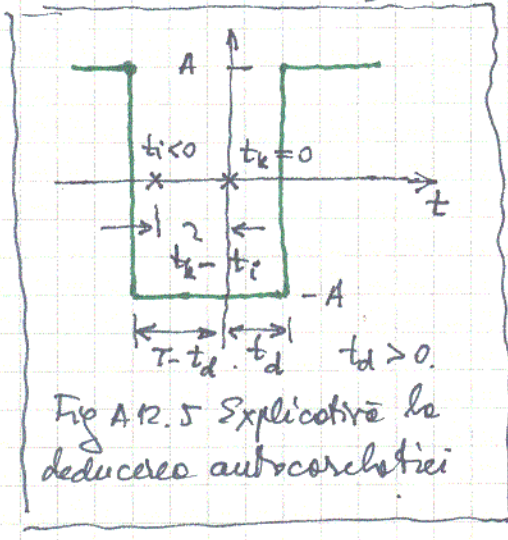 A
ti<0 tk=0
t
τ
tk-ti
-A
T-td. td td>0.
Fig A12.5 Explicativă la
deducerea autocorelației